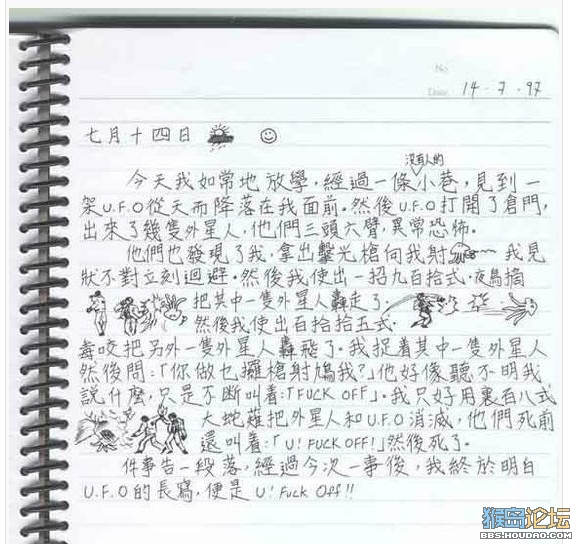 No
Date 14 · 7 · 97
七月十四日
没有人的
今天我如常地放學，經過一條小巷，見到一
架U.F.O從天而降落在我面前。然後U.F.O打開了倉門，
出來了幾隻外星人，他們三頭六臂，異常恐怖。
他們也發現了我，拿出擊光槍向我射 我見
狀不對立刻迴避。然後我使出一招九百拾式·夜鳥摘
把其中一隻外星人轟走了。
然後我使出百拾拾五式·
毒咬把另外一隻外星人轟飛了。我捉着其中一隻外星人
然後問：「你做乜攞槍射鳩我?」他好像聽不明我
說什麼，只是不斷叫着：「FUCK OFF」。我只好用裏百八式
大蛇薙把外星人和U.F.O消滅，他們死前
還叫着：「U! FUCK OFF!」然後死了。
件事告一段落，經過今次一事後，我終於明白
U.F.O的長寫，便是U! Fuck Off!!
猴岛论坛
BBS.HOUDAO.COM